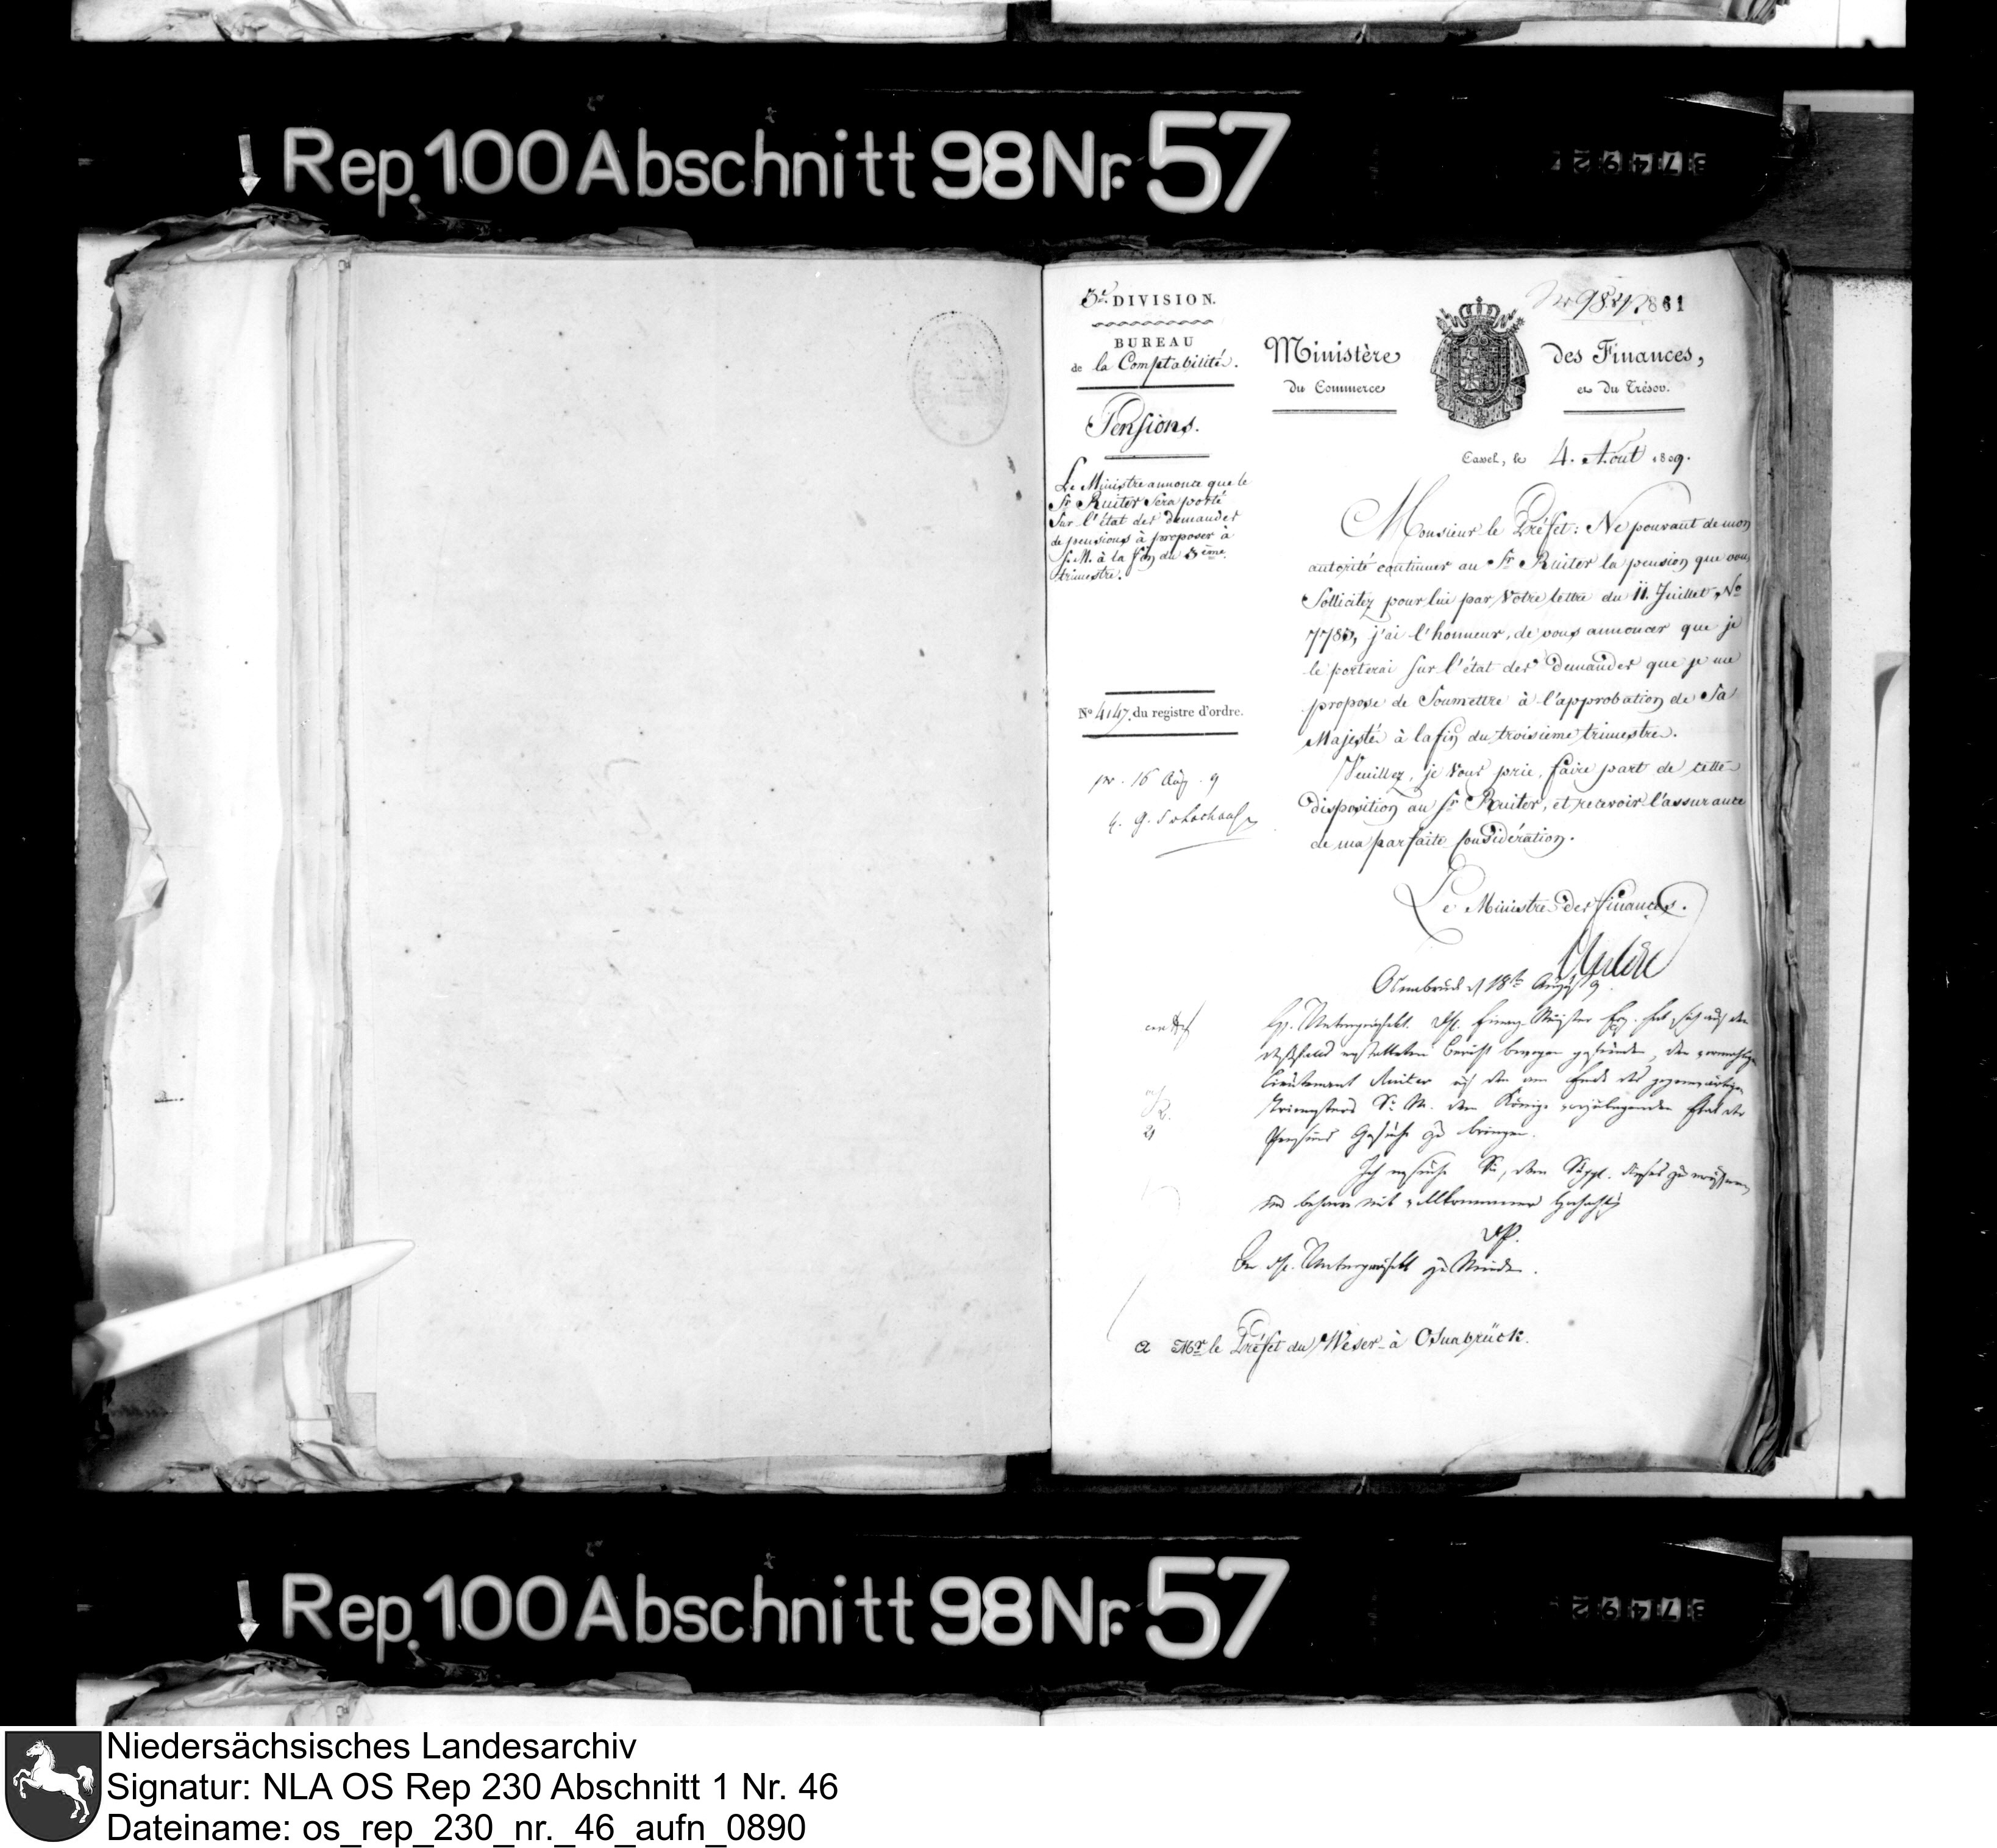 Rep. 100 Abschnitt 98 Nr. 57
3e. DIVISION.
BUREAU
de la Comptabilité.
Pensions.
Le Ministre annonce que le
Sr. Ruiter sera porté
sur l'état des demandes
de pensions à proposer à
S. M. à la fin du 3ème.
trimestre.
No 4147. du registre d'ordre.
pr. 16 Aug. 9
861
Ministère des Finances,
du Commerce et du Trésor.
Cassel, le 4. Aout 1809.
Monsieur le Préfet: Ne pouvant de mon
autorité continuer au Sr. Ruiter la pension que vous
Sollicitez pour lui par votre lettre du 11. Juillet, No
7785, j'ai l'honneur, de vous annoncer que je
le porterai sur l'état des demandes que je me
propose de Soumettre à l'approbation de Sa
Majesté à la fin du troisieme trimestre.
Veuillez, je vous prie, faire part de cette
disposition au Sr Ruiter, et recevoir l'assurance
de ma parfaite Considération.
Le Ministre des finances.
Osnabrück d 18t August 9.
Lieutenant Ruiter auf den am Ende des gegenwärtigen
Trimesters Sr. M. dem Könige vorzulegenden Etat der
Pensions Gesuche zu bringen.
Ich ersuche Sie, dem Suppl. dieses zu eröffnen,
und beharre mit vollkommener Hochachtung
An H. Unterpräfekt zu Minden.
a Mr. le Préfet du Weser à Osnabrück.
Rep. 100 Abschnitt 98 Nr. 57
Niedersächsisches Landesarchiv
Signatur: NLA OS Rep 230 Abschnitt 1 Nr. 46
Dateiname: os_rep_230_nr._46_aufn_0890